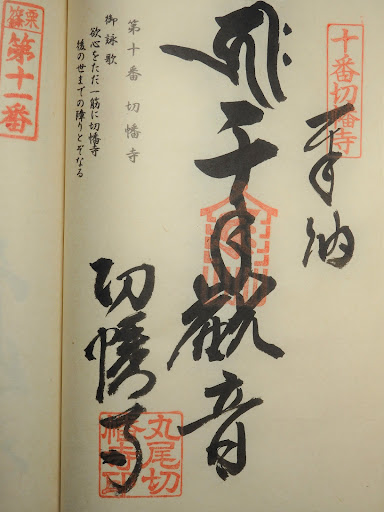 十番切幡寺
奉納
千手観音
切幡寺
丸尾切
幡寺印
第十番 切幡寺
御詠歌
欲心をただ一筋に切幡寺
後の世までの障りとぞなる
篠栗
第十一番